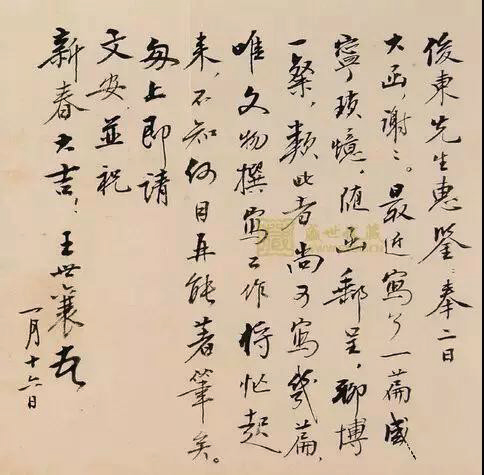 俊東先生惠鑒：奉二日
大函，謝〻。最近寫了一篇咸
寧瑣憶，随函郵呈，聊博
一粲，類此者尚可寫幾篇，
唯文物撰寫工作將忙起
来，不知何日再能著筆矣。
匆上即請
文安，並祝
新春大吉！王世襄
一月十六日
盛世收藏